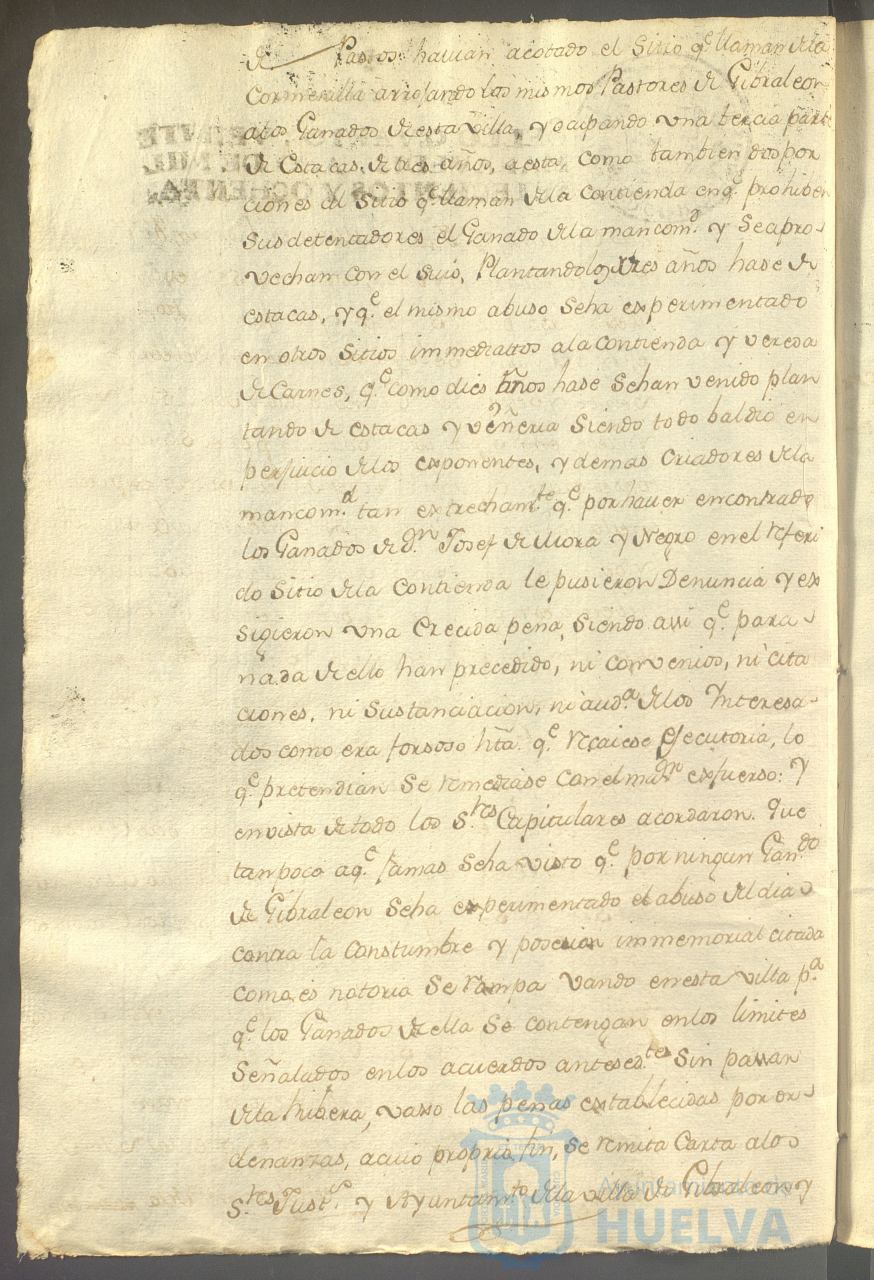 de Pastos havian acotado el Sitio q.e llaman dela
Cormenilla arrojando los mismos Pastores de Gibraleon
alos Ganados de esta villa, y ocupando una tercia parte
de Estacas, de tres años, a esta, como tambien dos por
ciones al Sitio q.e llaman dela contienda en q.e prohiben
sus detentadores el Ganado dela mancom.d y se apro-
vechan con el suio, Plantandolo tres años hase de
estacas, y q.e el mismo abuso se ha experimentado
en otros sitios immediattos ala Contienda y vereda
de Carnes, q.e como dies años hase se han venido plan
tando de estacas y viñeria siendo todo baldio en
perjuicio delos exponentes, y demas Criadores dela
mancom.d tan extrecham.te q.e por haver encontrado
los Ganados de D.n Josef de Mora y Negro en el referi
do sitio dela Contienda le pusieron Denuncia y ex
sigieron una Crecida pena, siendo assi q.e para
nada de ello han precedido, ni convenios, ni cita
ciones, ni sustanciacion, ni aud.a delos Interesa-
dos como era forsoso hta. q.e recaiese Ejecutoria, lo
q.e pretendian se remediase con el maior exfuerso: Y
en vista de todo los S.res Capitulares acordaron. Que
tanpoco aq.e jamas se ha visto q.e por ningun Gan.do
de Gibraleon se ha experimentado el abuso del dia
contra la Constumbre y posesion immemorial citada
como es notoria se rompa vando en esta villa p.a
q.e los Ganados de ella se contengan en los limites
señalados en los acuerdos anteced.tes sin passar
dela Ribera, vaxo las penas extablecidas por or-
denanzas, acuio proprio fin, se remita Carta alos
S.res Just.a y Ayuntam.to dela villa de Gibraleon y
Ayuntamiento de
HUELVA